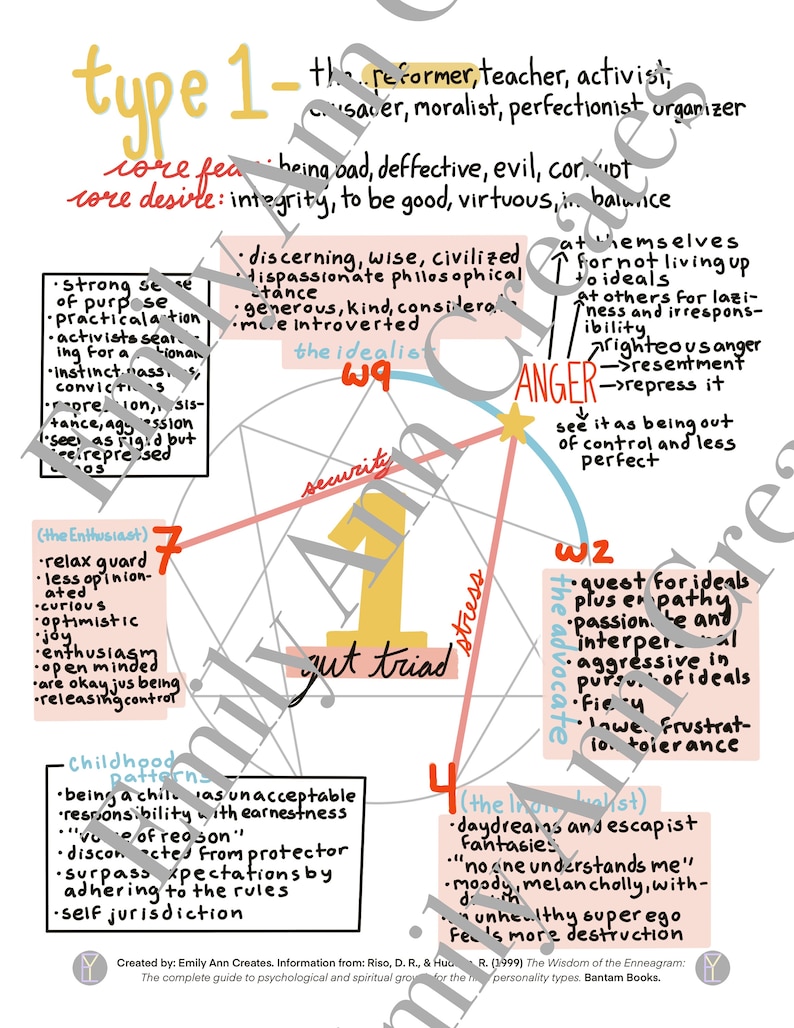 type 1-
the... reformer, teacher, activist,
crusader, moralist, perfectionist organizer
core fear: being bad, deffective, evil, corrupt
core desire: integrity, to be good, virtuous, in balance
• discerning, wise, civilized
• dispassionate philosophical
stance
• generous, kind, considerate
• more introverted
the idealist
w9
at themselves
for not living up
to ideals
at others for lazi-
ness and irrespons-
ibility
righteous anger
resentment
repress it
ANGER
see it as being out
of control and less
perfect
• strong sense
of purpose
• practical action
• activists search-
ing for a rational
• instinct, passions,
convictions
• repression, resis-
tance, aggression
• seen as rigid but
repressed
security
stress
1
gut triad
(the Enthusiast)
7
• relax guard
• less opinion-
ated
• curious
• optimistic
• joy
• enthusiasm
• open minded
• are okay jus being
• releasing control
w2
the advocate
• quest for ideals
plus empathy
• passionate and
interpersonal
• aggressive in
pursuit of ideals
• fiery
• lower frustrat-
ion tolerance
childhood
patterns
• being a child was unacceptable
• responsibility with earnestness
• "voice of reason"
• disconnected from protector
• surpass expectations by
adhering to the rules
• self jurisdiction
4
(the Individualist)
• daydreams and escapist
fantasies
• "no one understands me"
• moody, melancholly, with-
drawn
• an unhealthy super ego
feels more destruction
Created by: Emily Ann Creates. Information from: Riso, D. R., & Hudson, R. (1999) The Wisdom of the Enneagram:
The complete guide to psychological and spiritual growth for the nine personality types. Bantam Books.
Emily Ann Creates
Emily Ann Creates
Emily Ann Creates